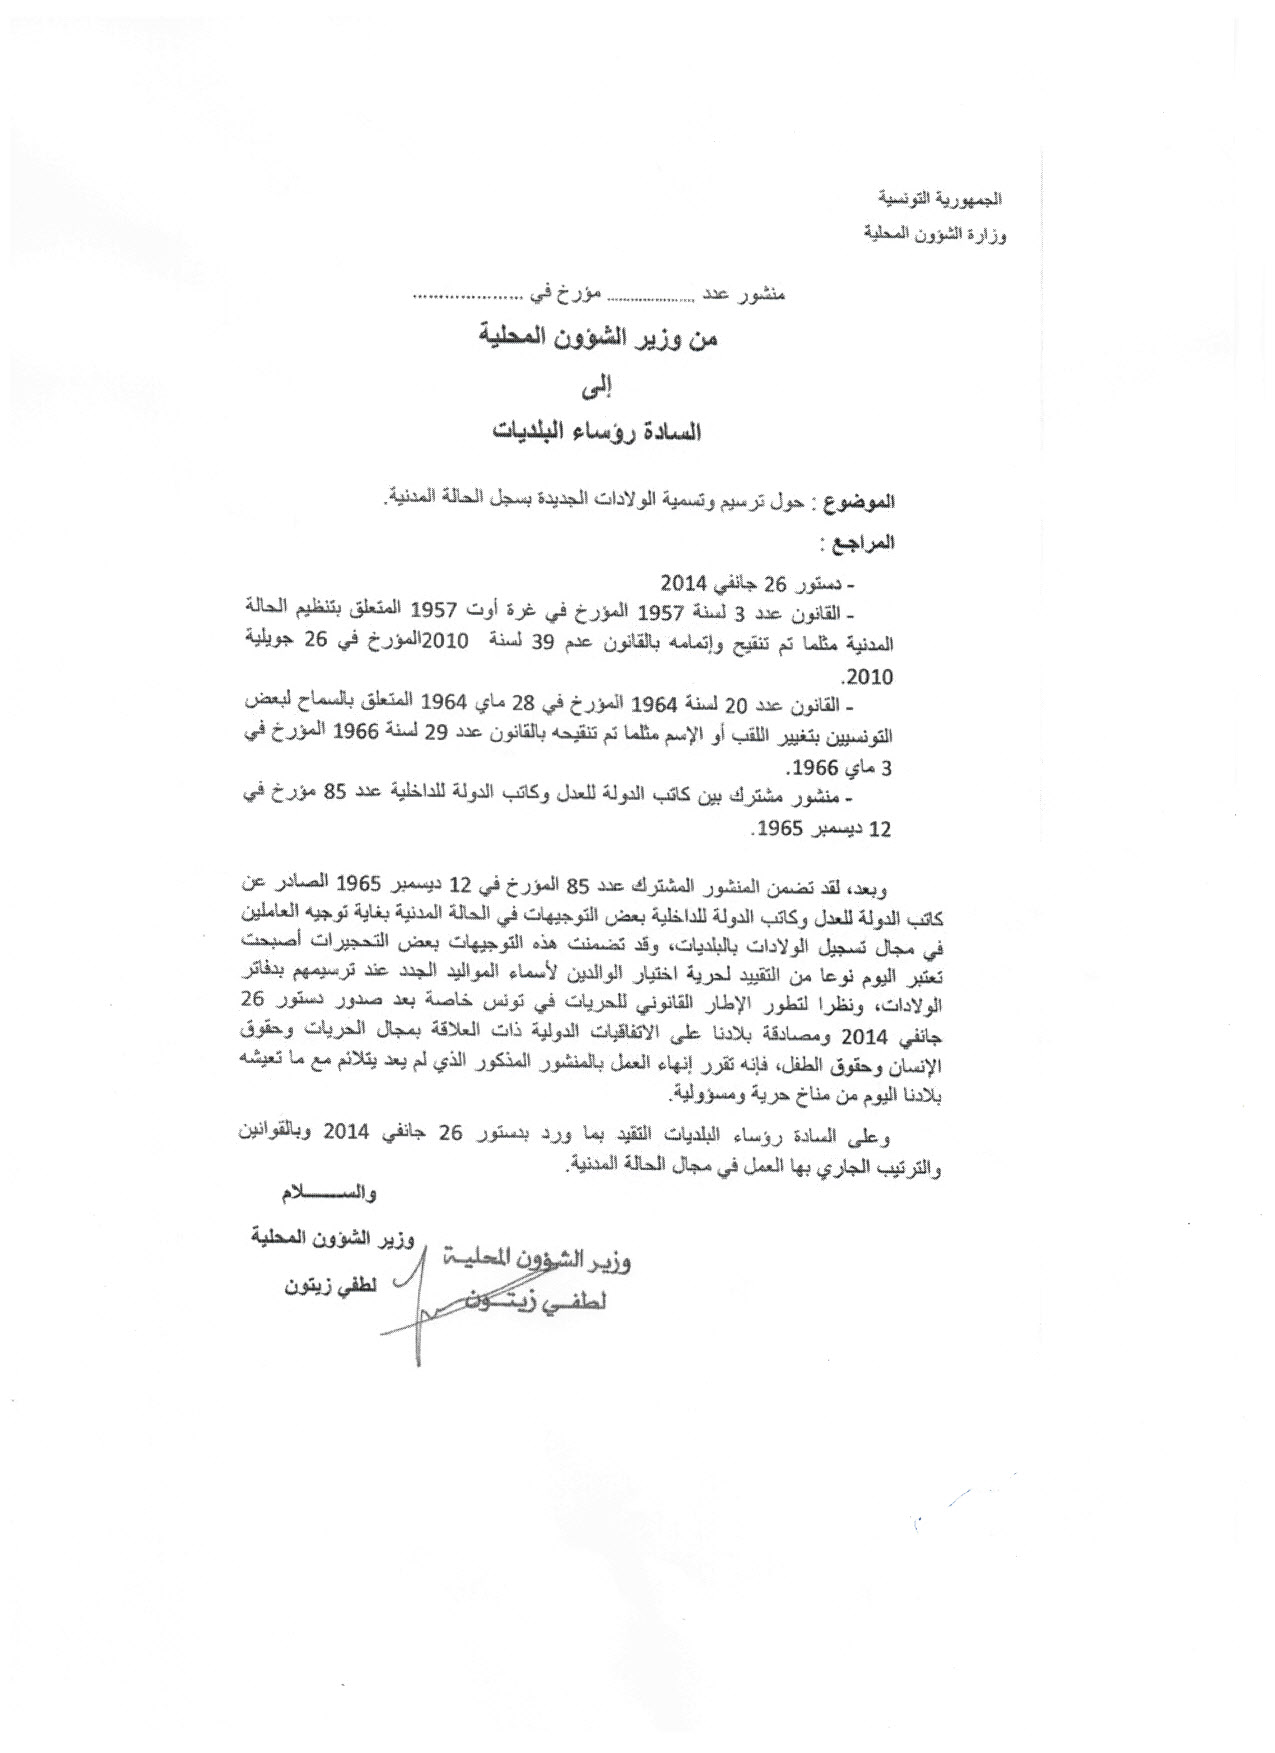 الجمهورية التونسية
وزارة الشؤون المحلية
منشور عدد ..................... مؤرخ في .....................
من وزير الشؤون المحلية
إلى
السادة رؤساء البلديات
الموضوع : حول ترسيم وتسمية الولادات الجديدة بسجل الحالة المدنية.
المراجع :
- دستور 26 جانفي 2014
- القانون عدد 3 لسنة 1957 المؤرخ في غرة أوت 1957 المتعلق بتنظيم الحالة
المدنية مثلما تم تنقيح وإتمامه بالقانون عدم 39 لسنة 2010المؤرخ في 26 جويلية
2010.
- القانون عدد 20 لسنة 1964 المؤرخ في 28 ماي 1964 المتعلق بالسماح لبعض
التونسيين بتغيير اللقب أو الإسم مثلما تم تنقيحه بالقانون عدد 29 لسنة 1966 المؤرخ في
3 ماي 1966.
- منشور مشترك بين كاتب الدولة للعدل وكاتب الدولة للداخلية عدد 85 مؤرخ في
12 ديسمبر 1965.
وبعد، لقد تضمن المنشور المشترك عدد 85 المؤرخ في 12 ديسمبر 1965 الصادر عن
كاتب الدولة للعدل وكاتب الدولة للداخلية بعض التوجيهات في الحالة المدنية بغاية توجيه العاملين
في مجال تسجيل الولادات بالبلديات، وقد تضمنت هذه التوجيهات بعض التحجيرات أصبحت
تعتبر اليوم نوعا من التقييد لحرية اختيار الوالدين لأسماء المواليد الجدد عند ترسيمهم بدفاتر
الولادات، ونظرا لتطور الإطار القانوني للحريات في تونس خاصة بعد صدور دستور 26
جانفي 2014 ومصادقة بلادنا على الاتفاقيات الدولية ذات العلاقة بمجال الحريات وحقوق
الإنسان وحقوق الطفل، فإنه تقرر إنهاء العمل بالمنشور المذكور الذي لم يعد يتلائم مع ما تعيشه
بلادنا اليوم من مناخ حرية ومسؤولية.
وعلى السادة رؤساء البلديات التقيد بما ورد بدستور 26 جانفي 2014 وبالقوانين
والترتيب الجاري بها العمل في مجال الحالة المدنية.
والســـــــلام
وزير الشؤون المحلية
لطفي زيتون
وزيـر الشـؤون المحليـة
لطفــي زيتــون